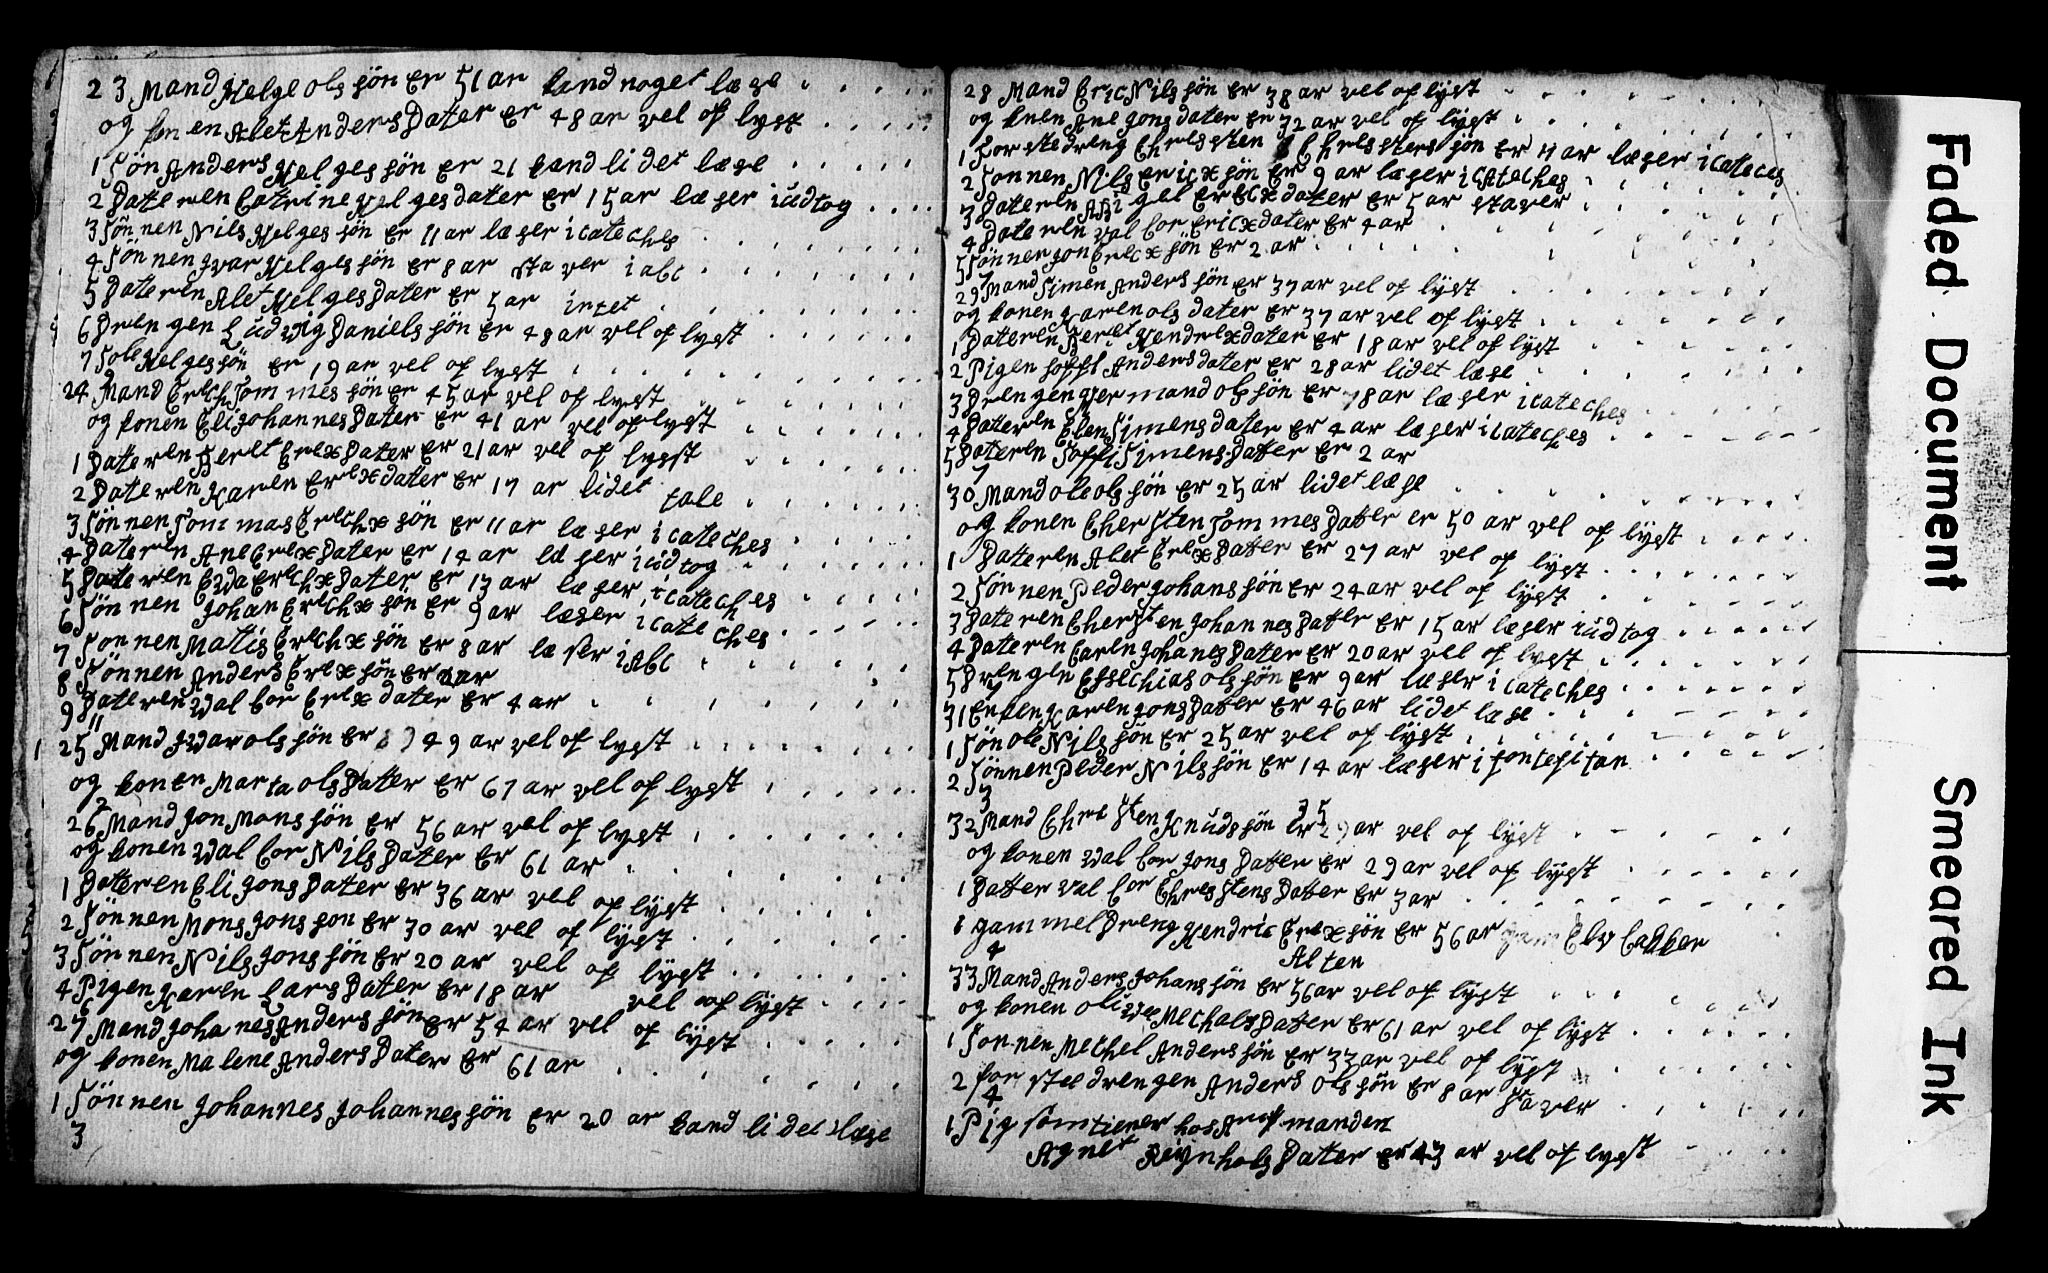 23 Mand Helge ols søn Er 51 ar kand noget læse
og konen Alet Anders Dater Er 48 ar vel op lyst
1 Søn Anders Helges søn Er 21 kand lidet læse
2 Dateren Catrine Helgesdater Er 15 ar læser i udtog
3 Sønnen Nils Helges søn Er 11 ar læser i cateches
4 Sønnen Jvar Helges søn Er 8 ar staver i abc
5 Dateren Alet Helges Dater Er 5 ar intet
6 Drengen Ludwig Daniels søn Er 48 ar vel op lyst
7 Sole Helges søn Er 19 ar vel op lyst
9
24 Mand Erich Tommes søn er 45 ar vel op lyst
og konen Eli Johannes Dater Er 41 ar vel op lyst
1 Dateren Berit Erix Dater Er 21 ar vel op lyst
2 Dateren Karen Erixdater Er 17 ar lidet tale
3 Sønnen Tommas Erichx søn Er 11 ar læser i cateches
4 Dateren Ane Erix Dater Er 14 ar læser i udtog
5 Dateren Edda Erichx Dater Er 13 ar læser i cateches
6 Sønnen Johan Erichx søn Er 9 ar læser i cateches
7 Sønnen Mattis Erichx søn Er 8 ar læser i Abc
8 Sønnen Anders Erix søn Er ar
9 Dateren Walbor Erix dater Er 4 ar
11
25 Mand Jwar ols søn Er 49 ar vel op lyst
og konen Marta ols Datter Er 67 ar vel op lyst
2
26 Mand Jon Mons søn Er 56 ar vel op lyst
og konen Walbor Nils Dater Er 61 ar
1 Dateren Eli Jons Datter Er 36 ar vel op lyst
2 Sønnen Mons Jons søn Er 30 ar vel op lyst
3 Sønnen Nils Jons søn Er 20 ar vel op lyst
4 Pigen Karen Lars Dater Er 18 ar vel op lyst
6
27 Mand Johanes Anders søn Er 54 ar vel op lyst
og konen Malene Anders Dater Er 61 ar
1 Sønnen Johannes Johannes søn Er 20 ar kand lidet læse
3
28 Mand Eric Nils søn Er 38 ar vel op lyst
og konen Ane Jons dater Er 32 ar vel op lyst
1 Forstedreng Chressten Chresstens søn Er 11 ar læser i cateces
2 Sonnen Nils Ericx søn Er 9 ar læser i cateches
3 Dateren Abigel Erecx dater Er 5 ar staver
4 Dateren Valbor Ericx dater Er 4 ar
5 Sønnen Jon Erecx søn Er 2 ar
7
29 Mand Simen Anders søn Er 37 ar vel op lyst
og konen Karen ols dater Er 37 ar vel op lyst
1 Dateren Beret Hendrix dater Er 18 ar vel op lyst
2 Pigen Soffi Anders dater Er 28 ar lidet læse
3 Drengen Hermand ols søn Er 18 ar læser i cateches
4 Dateren Elen Simens dater Er 4 ar læser i cateches
5 Dateren Soffi Simens Datter Er 2 ar
7
30 Mand ole ols søn Er 25 ar lidet læse
og konen Chersten Tommes Datter er 50 ar vel op lyst
1 Datteren Alet Erix Datter Er 27 ar vel op lyst
2 Sønnen Peder Johans søn Er 24 ar vel op lyst
3 Dateren Chersten Johannes Datter Er 15 ar læser i udtog
4 Dateren Caren Johanes Datter Er 20 ar vel op lyst
5 Drengen Essechias ols søn Er 9 ar læser i cateches
7
31 Enken Karen Jons Datter Er 46 ar lidet læse
1 Søn ole Nils søn Er 25 ar vel op lyst
2 Sønnen Peder Nils søn Er 14 ar læser i fontepitan
3
32 Mand Chresten Knuds søn Er 35 ar vel op lyst
og konen Walbor Jons Datter Er 29 ar vel op lyst
1 Datter Valbor Chresstens Datter Er 3 ar
1 gammel Dreng Hendric Erix søn Er 56 ar
4
Alten
33 Mand Anders Johans søn Er 56 ar vel op lyst
og konen oliwe Mechals Datter Er 61 ar vel op lyst
1 Sonnen Mechel Anders søn Er 33 ar vel op lyst
2 forstedrengen Anders Ols søn Er 8 ar staver
4
1 Pig som tiener hos manden
Agnet Reijnhols Dater er 43 ar vel op lyst
Faded Document
Smeared Ink